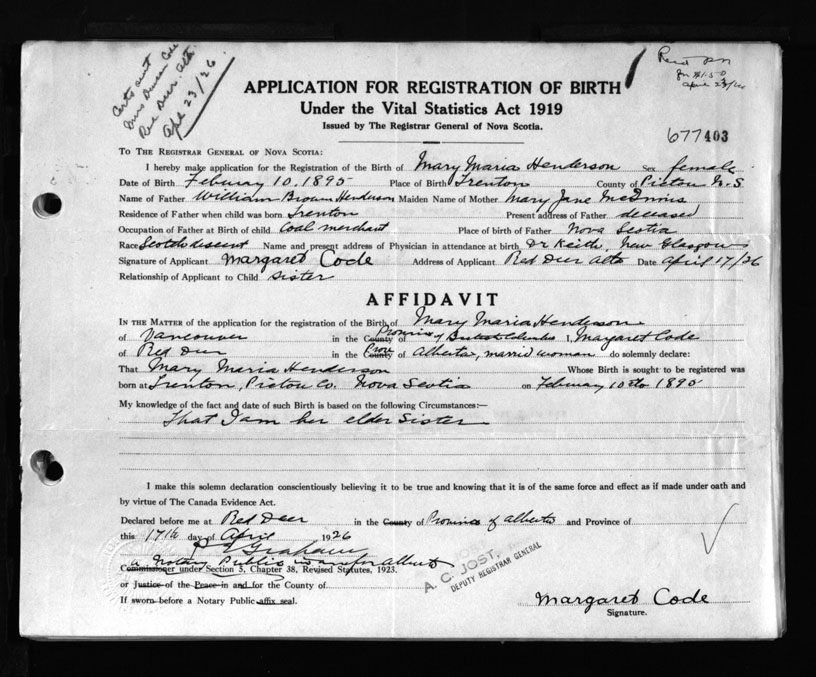 Certs sent
Mrs Duncan Code
Red Deer. Alta.
Apl 23/26.
Recd
$1.50
April 23/26
APPLICATION FOR REGISTRATION OF BIRTH
Under the Vital Statistics Act 1919
Issued by The Registrar General of Nova Scotia.
677403
TO THE REGISTRAR GENERAL OF NOVA SCOTIA:
I hereby make application for the Registration of the Birth of Mary Maria Henderson Sex female
Date of Birth Febuary 10. 1895 Place of Birth Trenton County of Pictou N. S.
Name of Father William Brown Henderson Maiden Name of Mother Mary Jane McInnis
Residence of Father when child was born Trenton Present address of Father deceased
Occupation of Father at Birth of child Coal merchant Place of birth of Father Nova Scotia
Race Scotch descent Name and present address of Physician in attendance at birth Dr Keith, New Glasgow
Signature of Applicant Margaret Code Address of Applicant Red Deer Alta Date April 17/26
Relationship of Applicant to Child sister
AFFIDAVIT
IN THE MATTER of the application for the registration of the Birth of Mary Maria Henderson
of Vancouver in the County Province of British Columbia I, Margaret Code
of Red Deer in the County Prov of Alberta, married woman do solemnly declare:
That Mary Maria Henderson Whose Birth is sought to be registered was
born at Trenton, Pictou Co. Nova Scotia on Febuary 10th 1895
My knowledge of the fact and date of such Birth is based on the following Circumstances:—
That I am her elder sister
I make this solemn declaration conscientiously believing it to be true and knowing that it is of the same force and effect as if made under oath and
by virtue of The Canada Evidence Act.
Declared before me at Red Deer in the County of Province of Alberta and Province of
this 17th day of April 1926
Graham
a Notary Public in and for Alberta
Commissioner under Section 5, Chapter 38, Revised Statutes, 1923.
or Justice of the Peace in and for the County of
If sworn before a Notary Public affix seal.
A. C. JOST,
DEPUTY REGISTRAR GENERAL
Margaret Code
Signature.